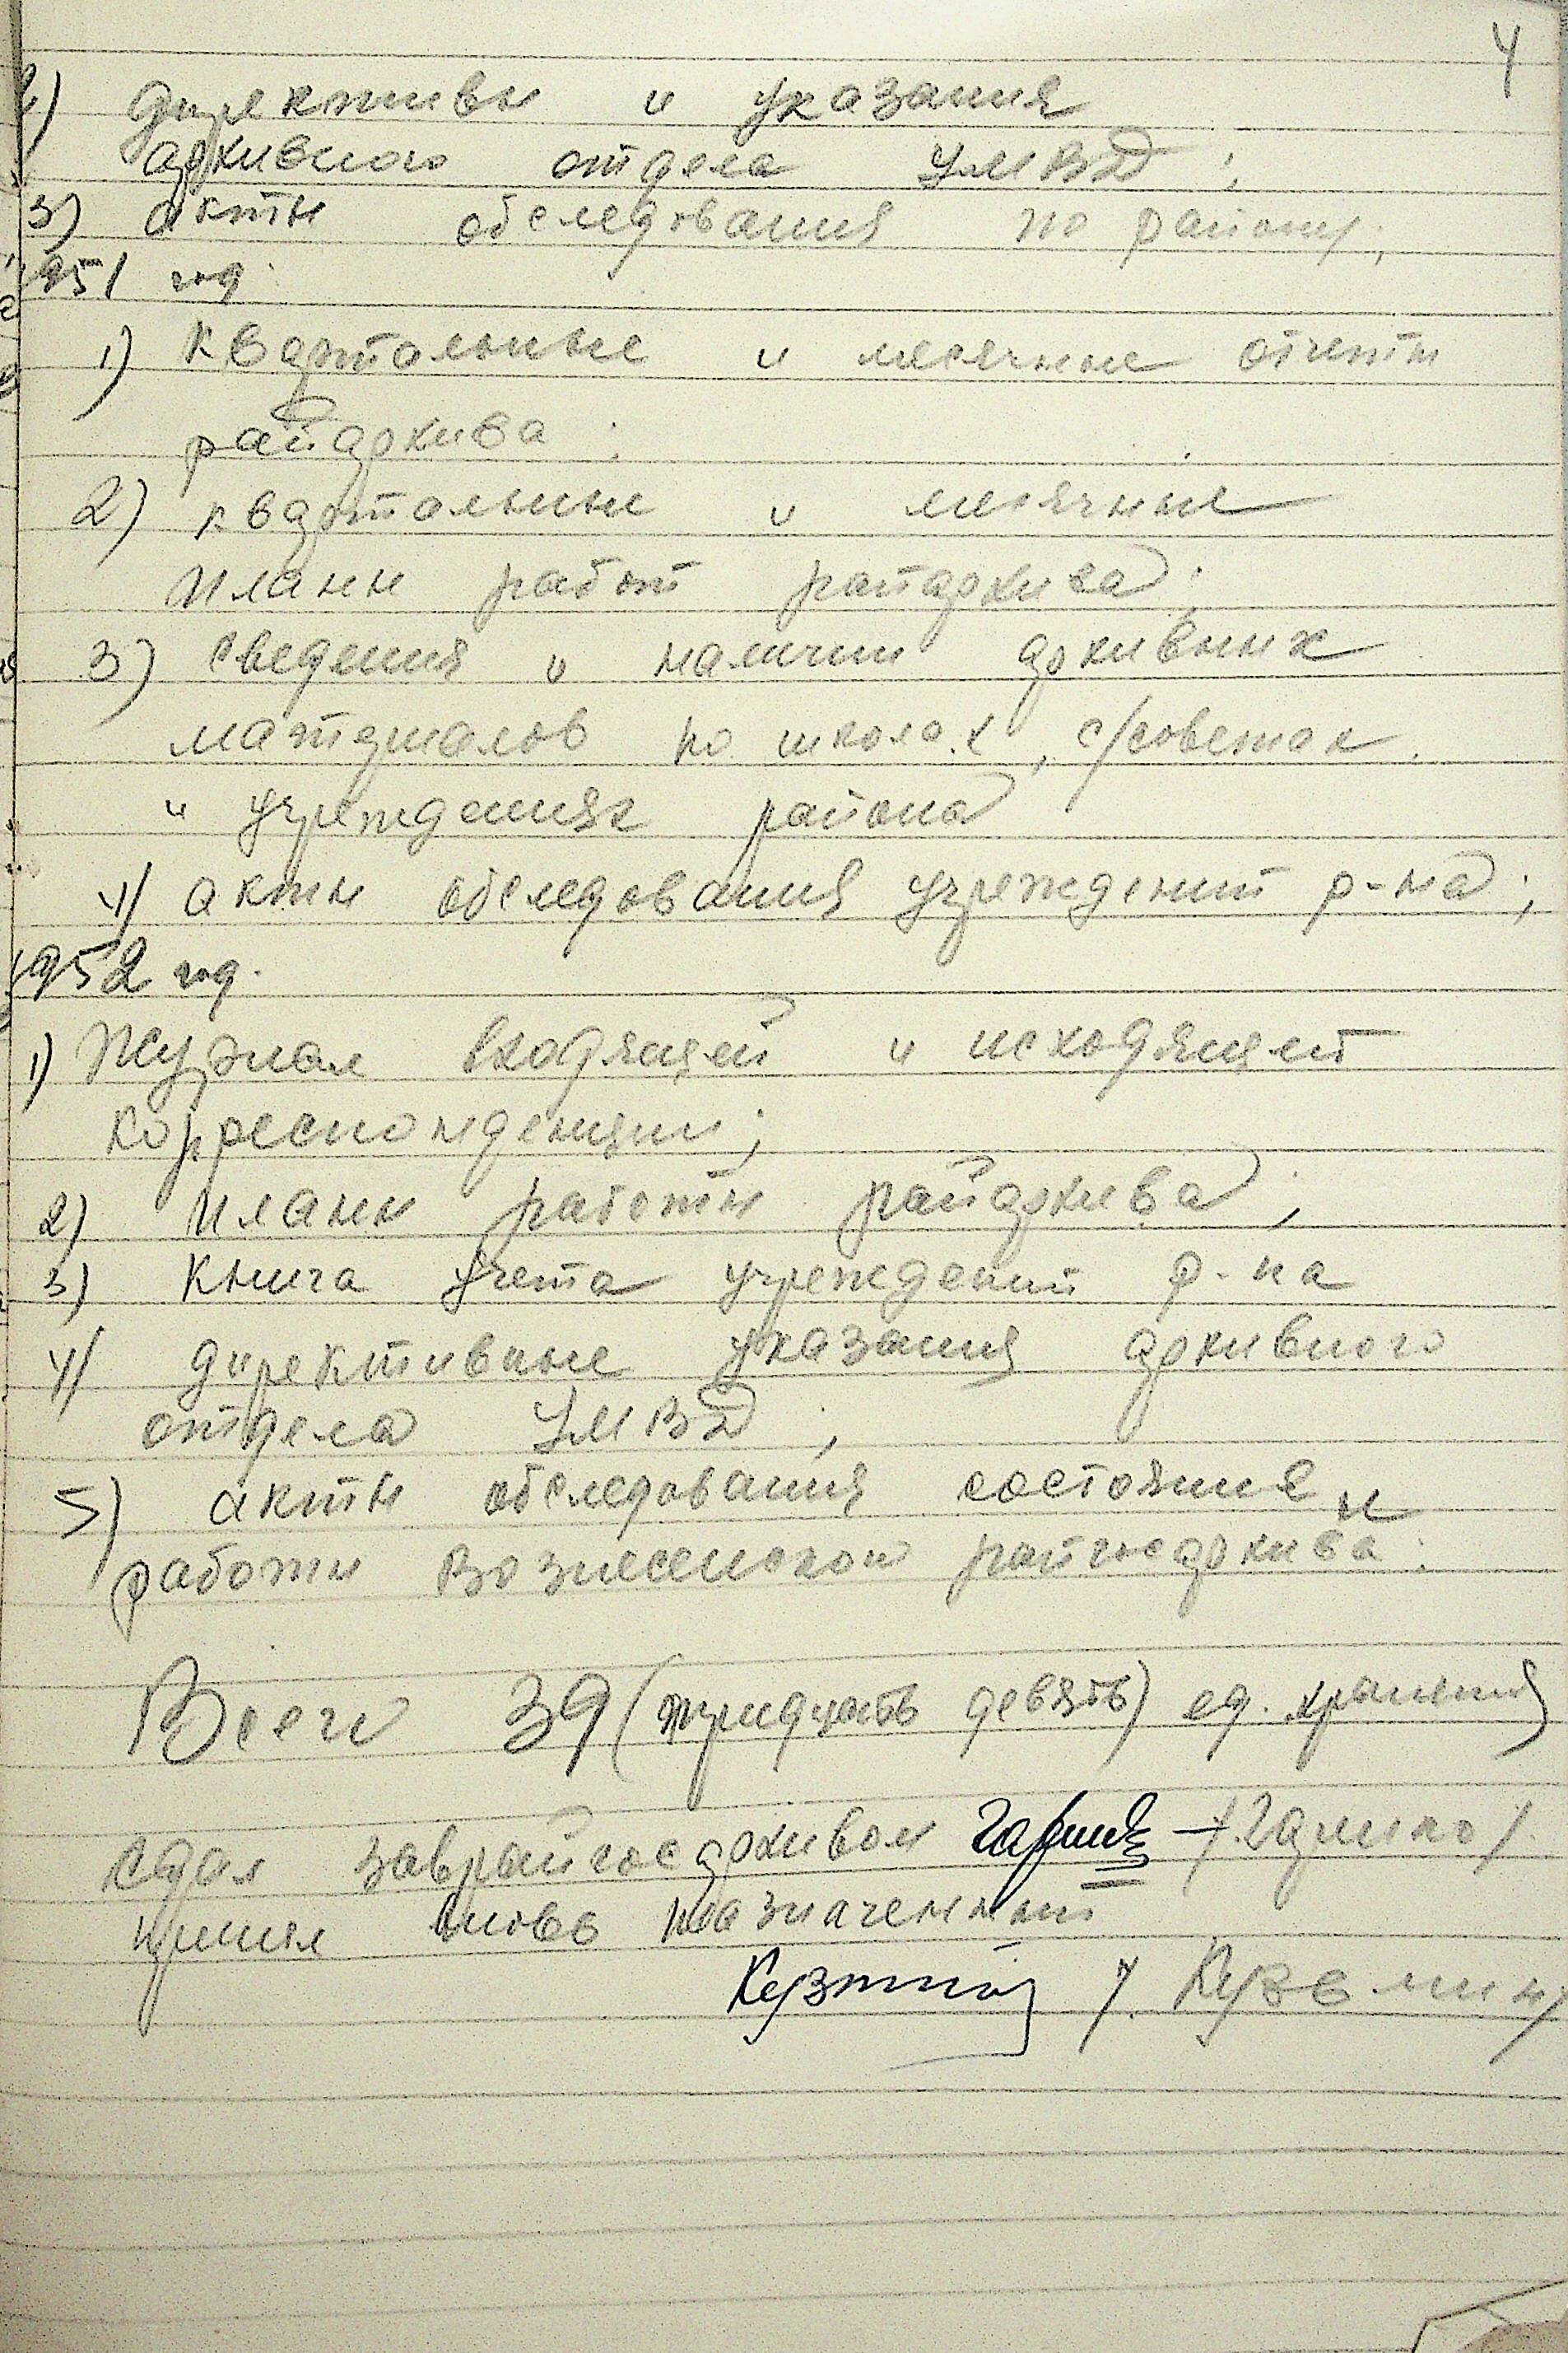 4
2) директивы и указания
архивного отдела УМВД;
3) акты обследования по району;
1951 год.
1) квартальные и месячные отчеты
райархива;
2) квартальные и месячные
планы работ райархива;
3) сведения и наличии архивных
материалов по школах, с/советах
и учреждениях района
4) акты обследования учреждений р-на;
1952 год.
1) Журнал входящей и исходящей
корреспонденции;
2) планы работы райархива;
3) Книга учета учреждений р-на
4) директивные указания архивного
отдела УМВД;
5) акты обследования состояния и
работы Вознесенского райгосархива.
Всего 39 (тридцать девять) ед. хранения
Сдал заврайгосархивом
принял вновь назначенный
/Кузьмин/